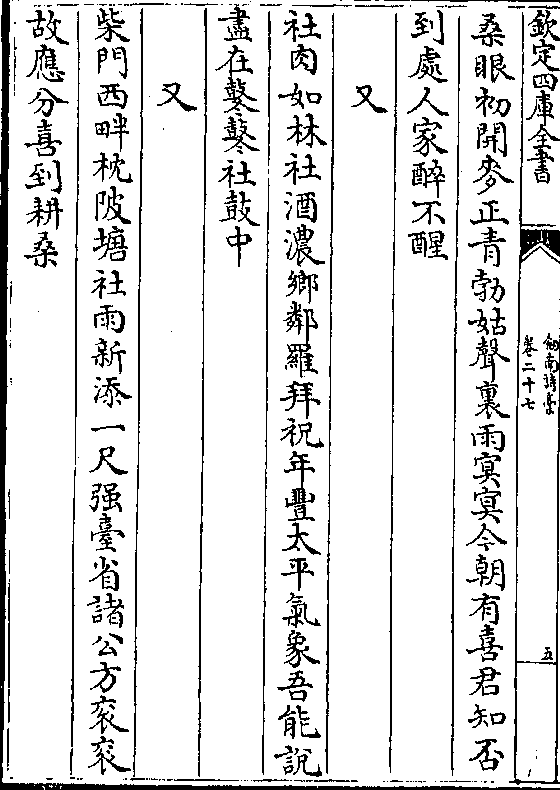 欽定四庫全書
劍南詩稾
卷二十七
五
桑眼初開麥正青勃姑聲裏雨冥冥今朝有喜君知否
到處人家醉不醒
又
社肉如林社酒濃鄉鄰羅拜祝年豐太平氣象吾能說
盡在鼕鼕社鼓中
又
柴門西畔枕陂塘社雨新添一尺强臺省諸公方衮衮
故應分喜到耕桑